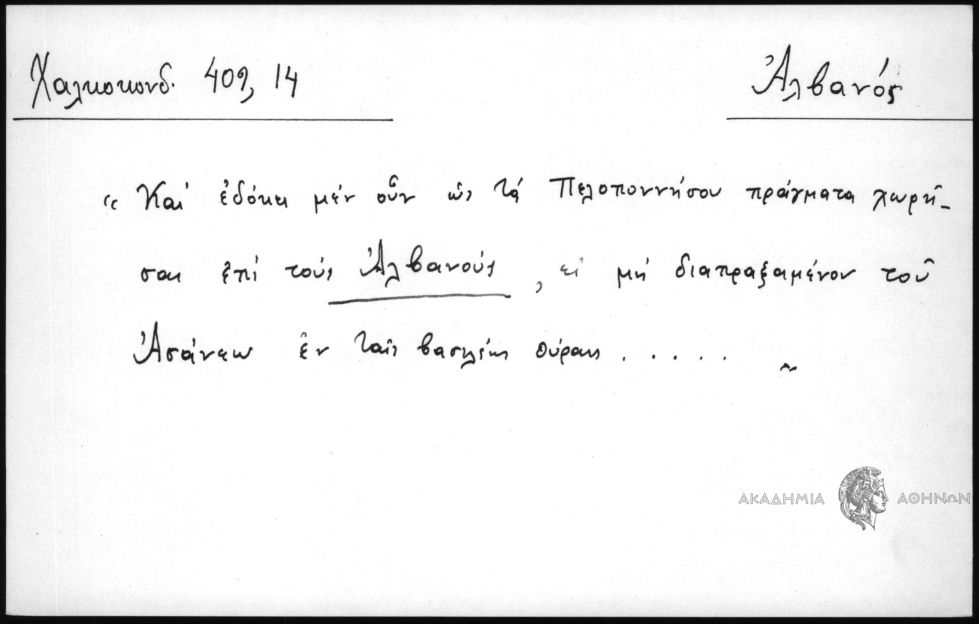 Χαλκοκονδ. 409, 14
Ἀλβανός
"Καὶ ἐδόκει μέν οὖν ὡς τά Πελοποννήσου πράγματα χωρῆ-
σαι ἐπί τούς Ἀλβανούς, εἰ μή διαπραξαμένου τοῦ
Ἀσάνεω ἐν ταῖς βασιλέως θύραις . . . . . "
ΑΚΑΔΗΜΙΑ ΑΘΗΝΩΝ